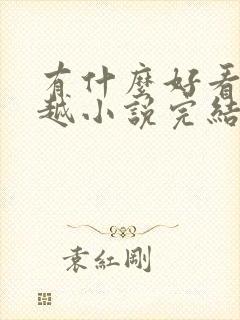 有什麼好看
越小說完結
袁紅剛